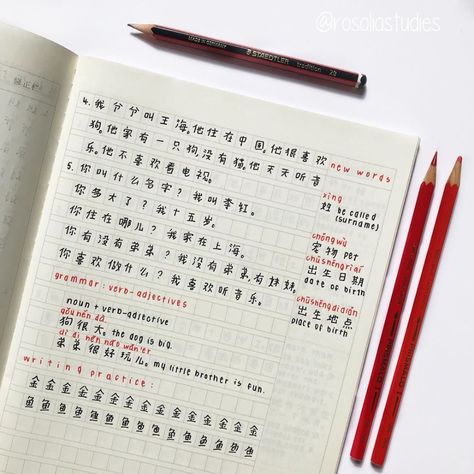 @rosaliastudies
STAEDTLER
tradition 2B
4. 我爷爷叫王海,他住在中国,他很喜欢
狗,他家有一只狗,没有猫,他天天听音
乐。他不喜欢看电视。
5. 你叫什么名字? 我叫李红。
你多大了? 我十五岁。
你住在哪儿? 我家在上海。
你有没有弟弟? 我没有弟弟,有妹妹。
你喜欢做什么? 我喜欢听音乐。
grammar: verb-adjectives
noun + verb-adjective
gǒu hěn dà
狗很大。the dog is big.
dì di hěn hǎo wán'er
弟弟很好玩儿。my little brother is fun.
writing practice:
金金金金金金金金金金金金金
鱼鱼鱼鱼鱼鱼鱼鱼鱼鱼鱼鱼鱼
new words
xìng
姓 be called
(surname)
chǒng wù
宠物 pet
chū shēng rì qī
出生日期
date of birth
chū shēng dì diǎn
出生地点
place of birth